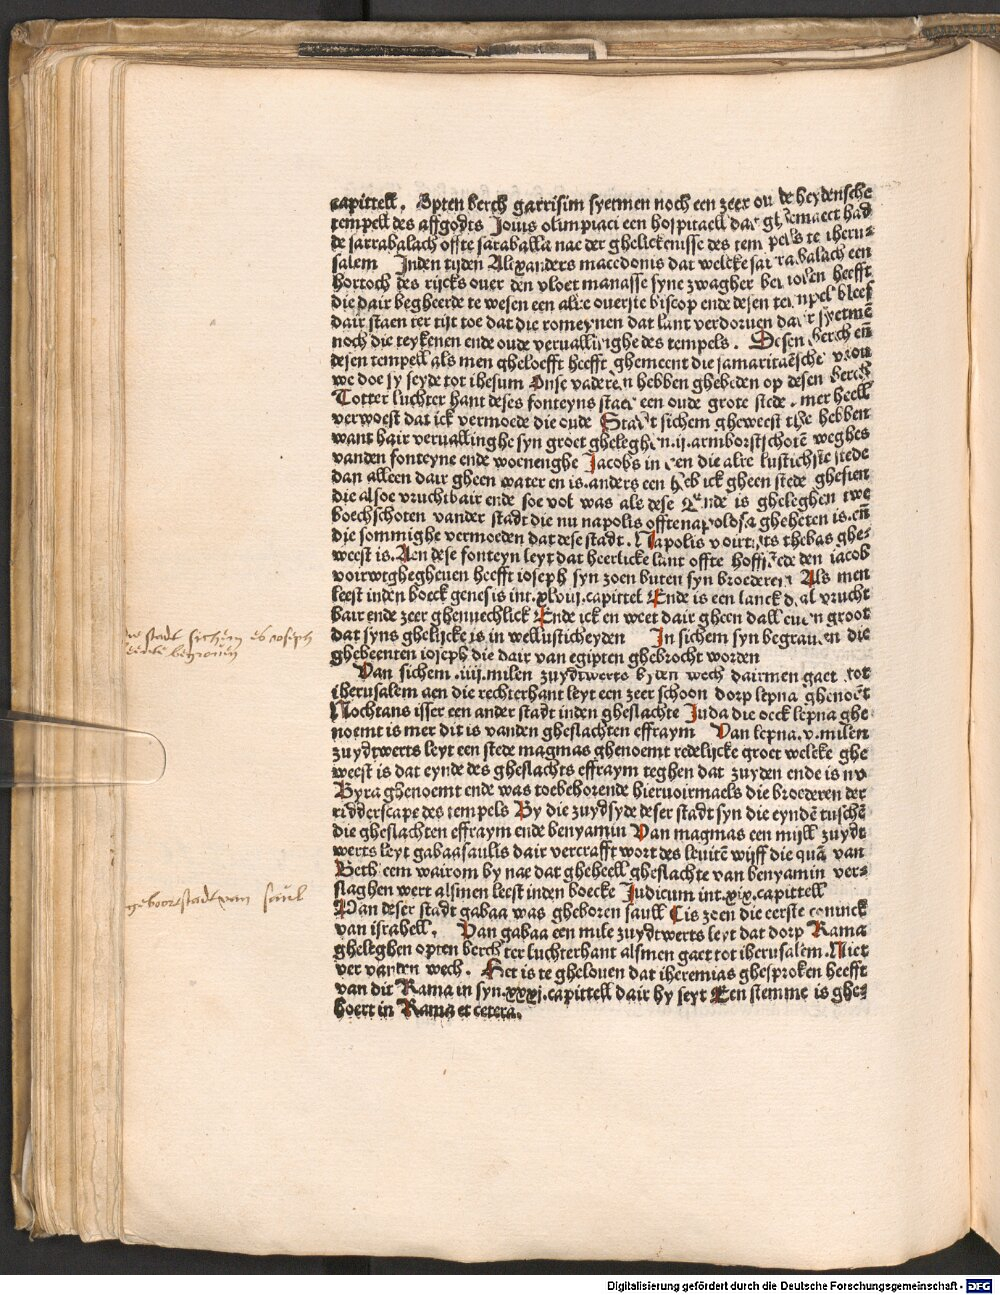 capittell. Opten berch garrisim syetmen noch een zeer oude heydensche
tempell des affgodts Jouis olimpiaci een hospitaell dat ghemaect had
de sarrabalach offte saraballa nae der ghelickenisse des tempels te iheru-
salem Inden tijden Alixanders macedonis dat welcke sarrabalach een
hortoch des rijcks ouer den vloet manasse syne zwagher beuolen heefft
die dair begheerde te wesen een alre ouerste biscop ende desen tempel bleef
dair staen ter tijt toe dat die romeynen dat lant verdoruen dair syetmē
noch die teykenen ende oude veruallinghe des tempels. Desen berch eñ
desen tempell als men gheloefft heefft ghemeent die samaritaēsche vrou
we doe sy seyde tot ihesum Onse vaderen hebben ghebeden op desen berch
Totter luchter hant deses fonteyns staet een oude grote stede. mer heell
verwoest dat ick vermoede die oude Stadt sichem gheweest te hebben
want hair veruallinghe syn groet gheleghen.ij.armborstschotē weghes
vanden fonteyne ende woenenghe Jacobs in een die alre lustichste stede
dan alleen dair gheen water en is.anders een heb ick gheen stede ghesien
die alsoe vruchtbair ende soe vol was als dese Ende is gheleghen twe
boechschoten vander stadt die nu napolis offtenapolosa gheheten is.eñ
die sommighe vermoeden dat dese stadt. Napolis voirtijts thebas ghe-
weest is. Aen dese fonteyn leyt dat heerlicke lant offte hoffstede den iacob
voirwtghegheuen heefft ioseph syn zoen buten syn broederen Als men
leest inden boeck genesis int.xlviij.capittel Ende is een lanck dal vrucht
bair ende zeer ghenuechlick Ende ick en weet dair gheen dall euen groot
dat syns ghelijcke is in wellusticheyden In sichem syn begrauen die
ghebeenten ioseph die dair van egipten ghebrocht worden
Van sichem.iiij.milen zuydtwerts by den wech dairmen gaet tot
iherusalem aen die rechterhant leyt een zeer schoon dorp lepna ghenoēt
Nochtans isser een ander stadt inden gheslachte Juda die oeck lepna ghe
noemt is mer dit is vanden gheslachten effraym Van lepna.v.milen
zuydtwerts leyt een stede magmas ghenoemt redelijcke groet welcke ghe
weest is dat eynde des gheslachts effraym teghen dat zuyden ende is nv
Byra ghenoemt ende was toebehorende hieruoirmaels die broederen der
ridderscape des tempels By die zuydsyde deser stadt syn die eyndē tuschē
die gheslachten effraym ende benyamin Van magmas een mijll zuydt
werts leyt gabaasaulis dair vercrafft wort des leuitē wijff die quā van
Beth eem wairom by nae dat gheheell gheslachte van benyamin ver-
slaghen wert alsmen leest inden boecke Judicum int.xix.capittell
Van deser stadt gabaa was gheboren saull Cis zoen die eerste coninck
van israhell. Van gabaa een mile zuydtwerts leyt dat dorp Rama
gheleghen opten berch ter luchterhant alsmen gaet tot iherusalem. Niet
ver vanden wech. Het is te ghelouen dat iheremias ghesproken heefft
van dit Rama in syn.xxxj.capittell dair hy seyt Een stemme is ghe-
hoert in Rama et cetera.
stadt sichem
geboortstadt van saul
Digitalisierung gefördert durch die Deutsche Forschungsgemeinschaft - DFG